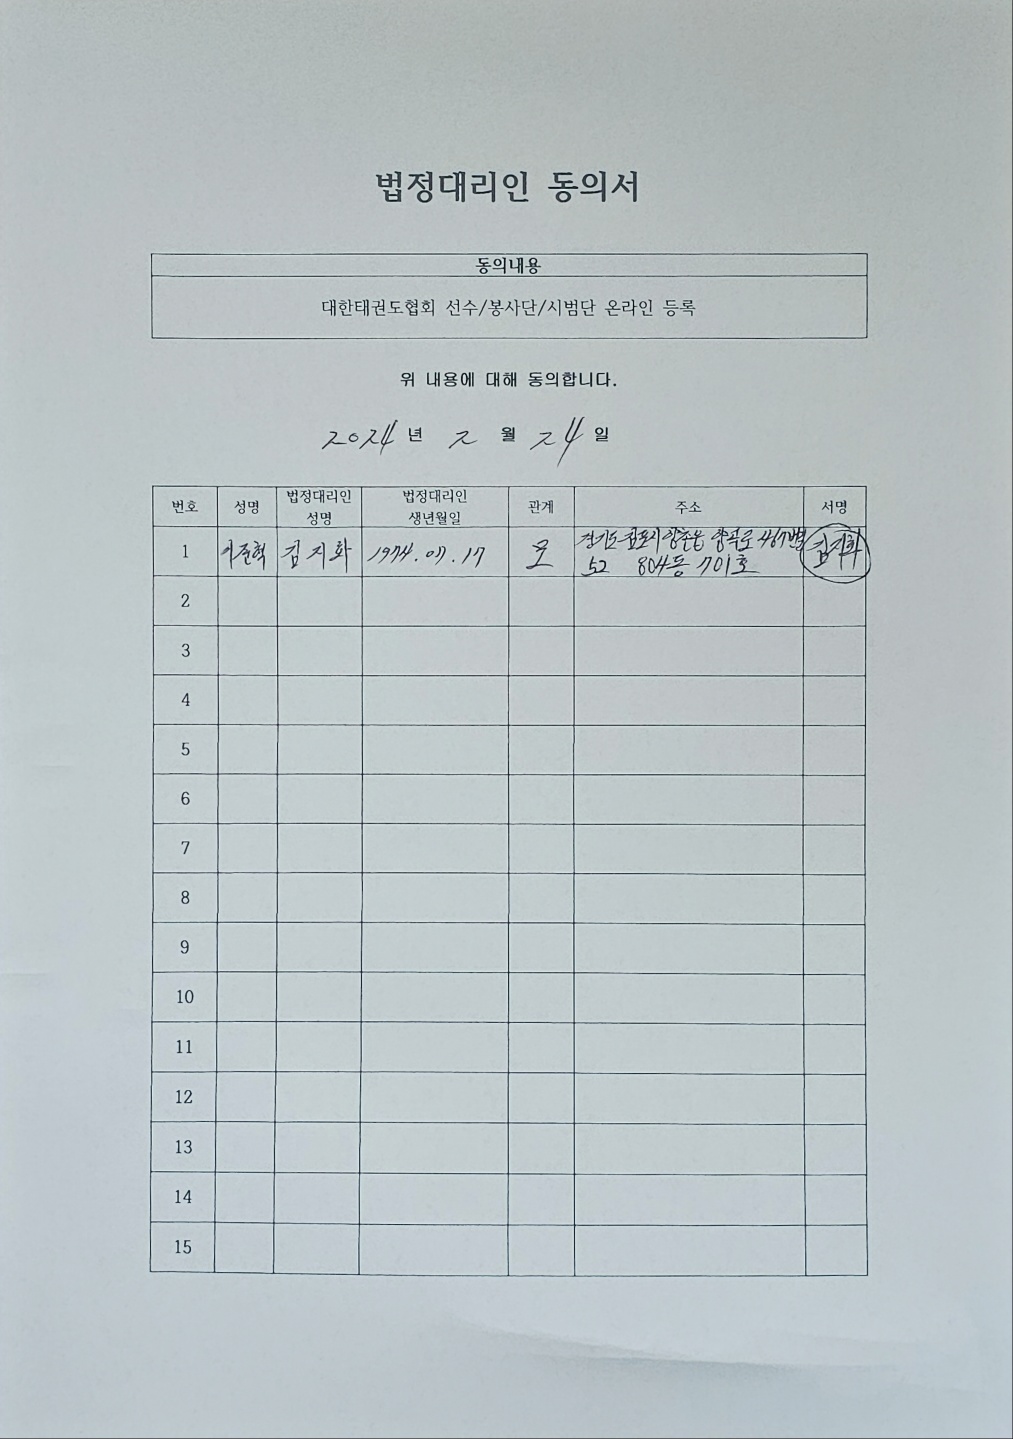 법정대리인 동의서
동의내용
대한태권도협회 선수/봉사단/시범단 온라인 등록
위 내용에 대해 동의합니다.
2024 년 2 월 24 일
번호 성명 법정대리인 성명 법정대리인 생년월일 관계 주소 서명
1 이준혁 김지화 1974.07.17 모 경기도 김포시 양촌읍 양곡로 467번길 김지화
52 804동 701호
2
3
4
5
6
7
8
9
10
11
12
13
14
15